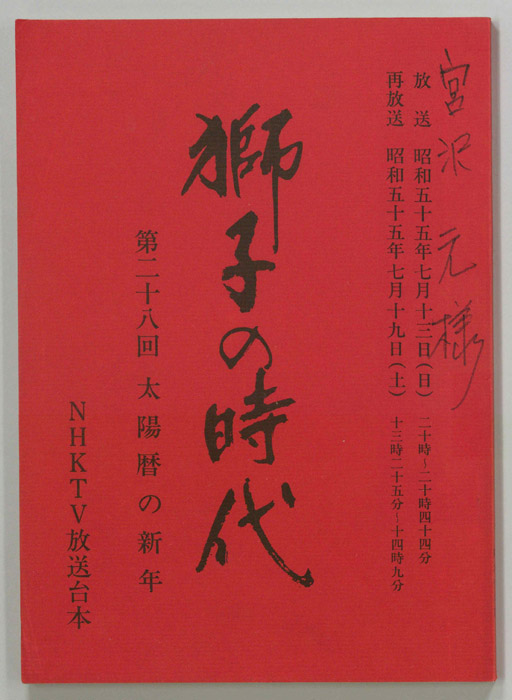 宮沢元様
放送 昭和五十五年七月十三日(日) 二十時~二十時四十四分
再放送 昭和五十五年七月十九日(土) 十三時二十五分~十四時九分
獅子の時代
第二十八回 太陽暦の新年
NHKTV放送台本